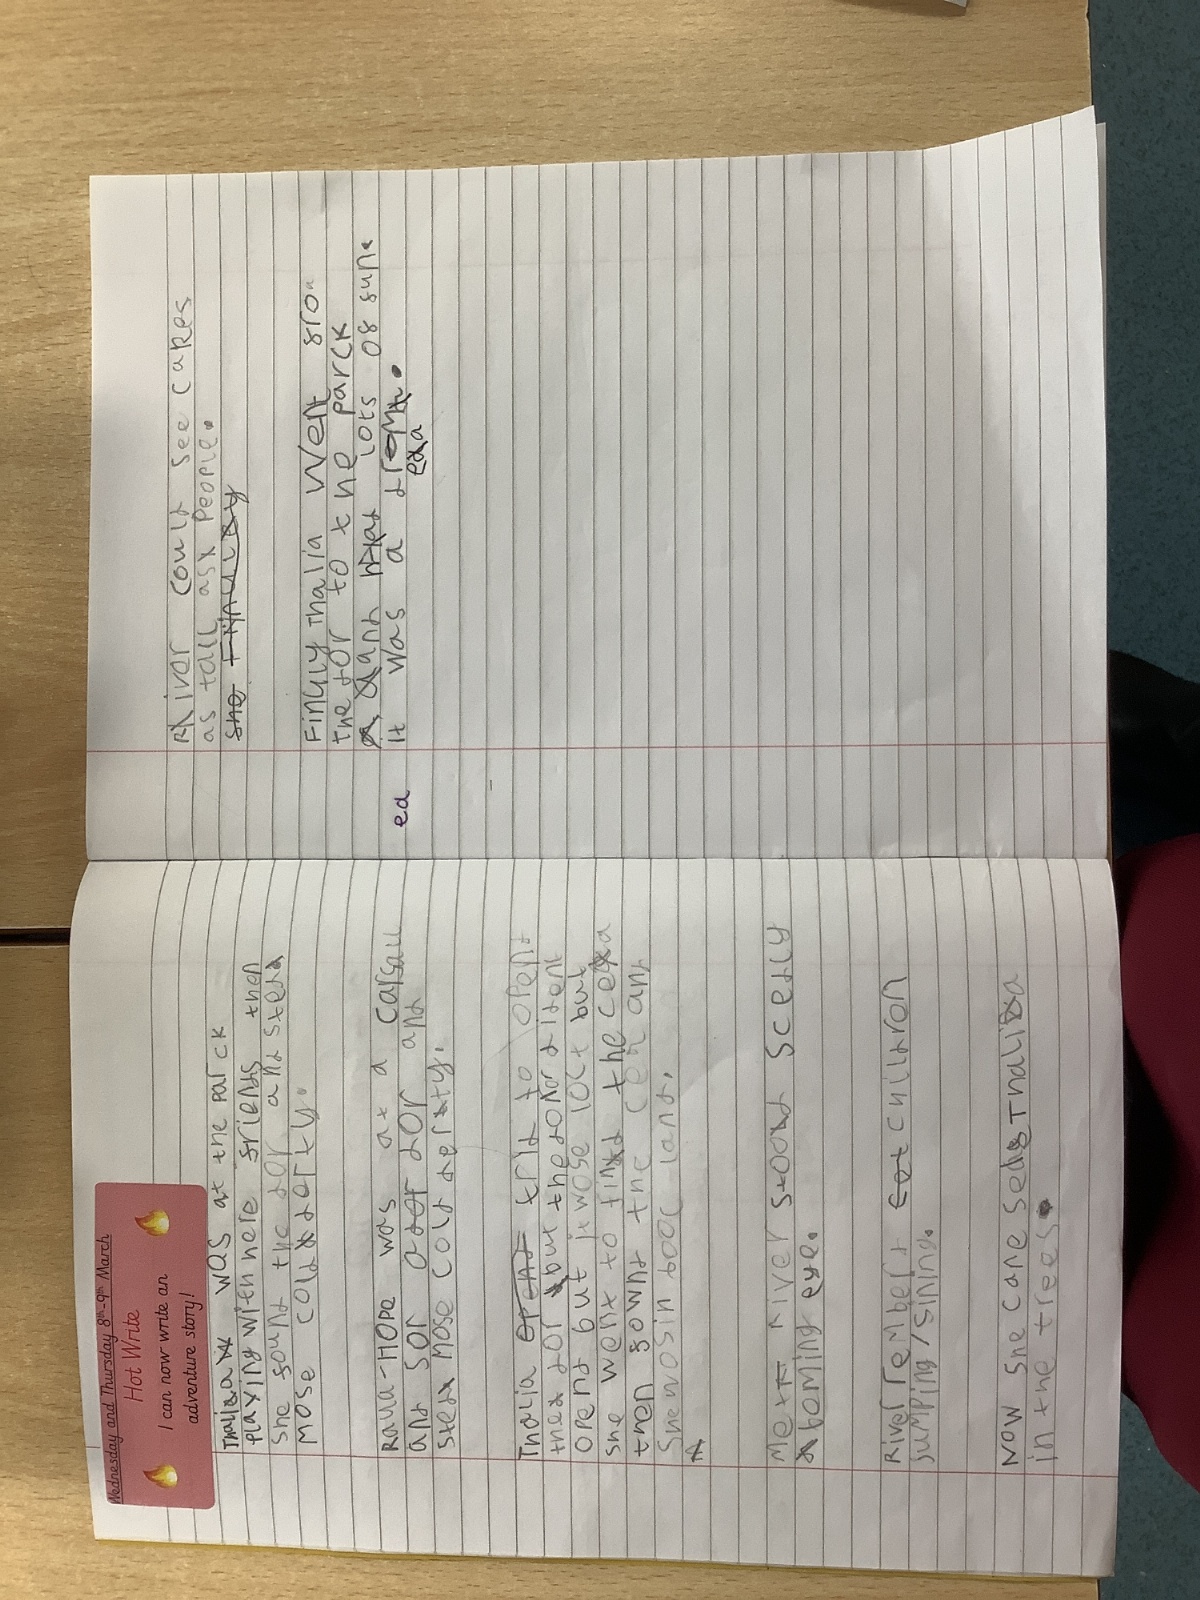 Wednesday and Thursday 8th-9th March
Hot Write
I can now write an
adventure story!
Thalia was at the parck
playing with here friends then
She found the dor and sterd
mose cold derty.
Rana-Hope was at a
and for dor and
sterd mose cold derty.
Thalia trid to opend
the dor but the dor dident
opend but it wose loct but
she went to find the cea
then fownd the cea and
She wos in book land.
A
River stood scerly
eye.
River remberd children
jumping/sining.
Now she cane sed Thalia
in the trees.
River could see cakes
as tall as people.
She Finulley
Finguly thalia went fro
the dor to the parck
and had lots of fun.
It was a drem.
ea
ea